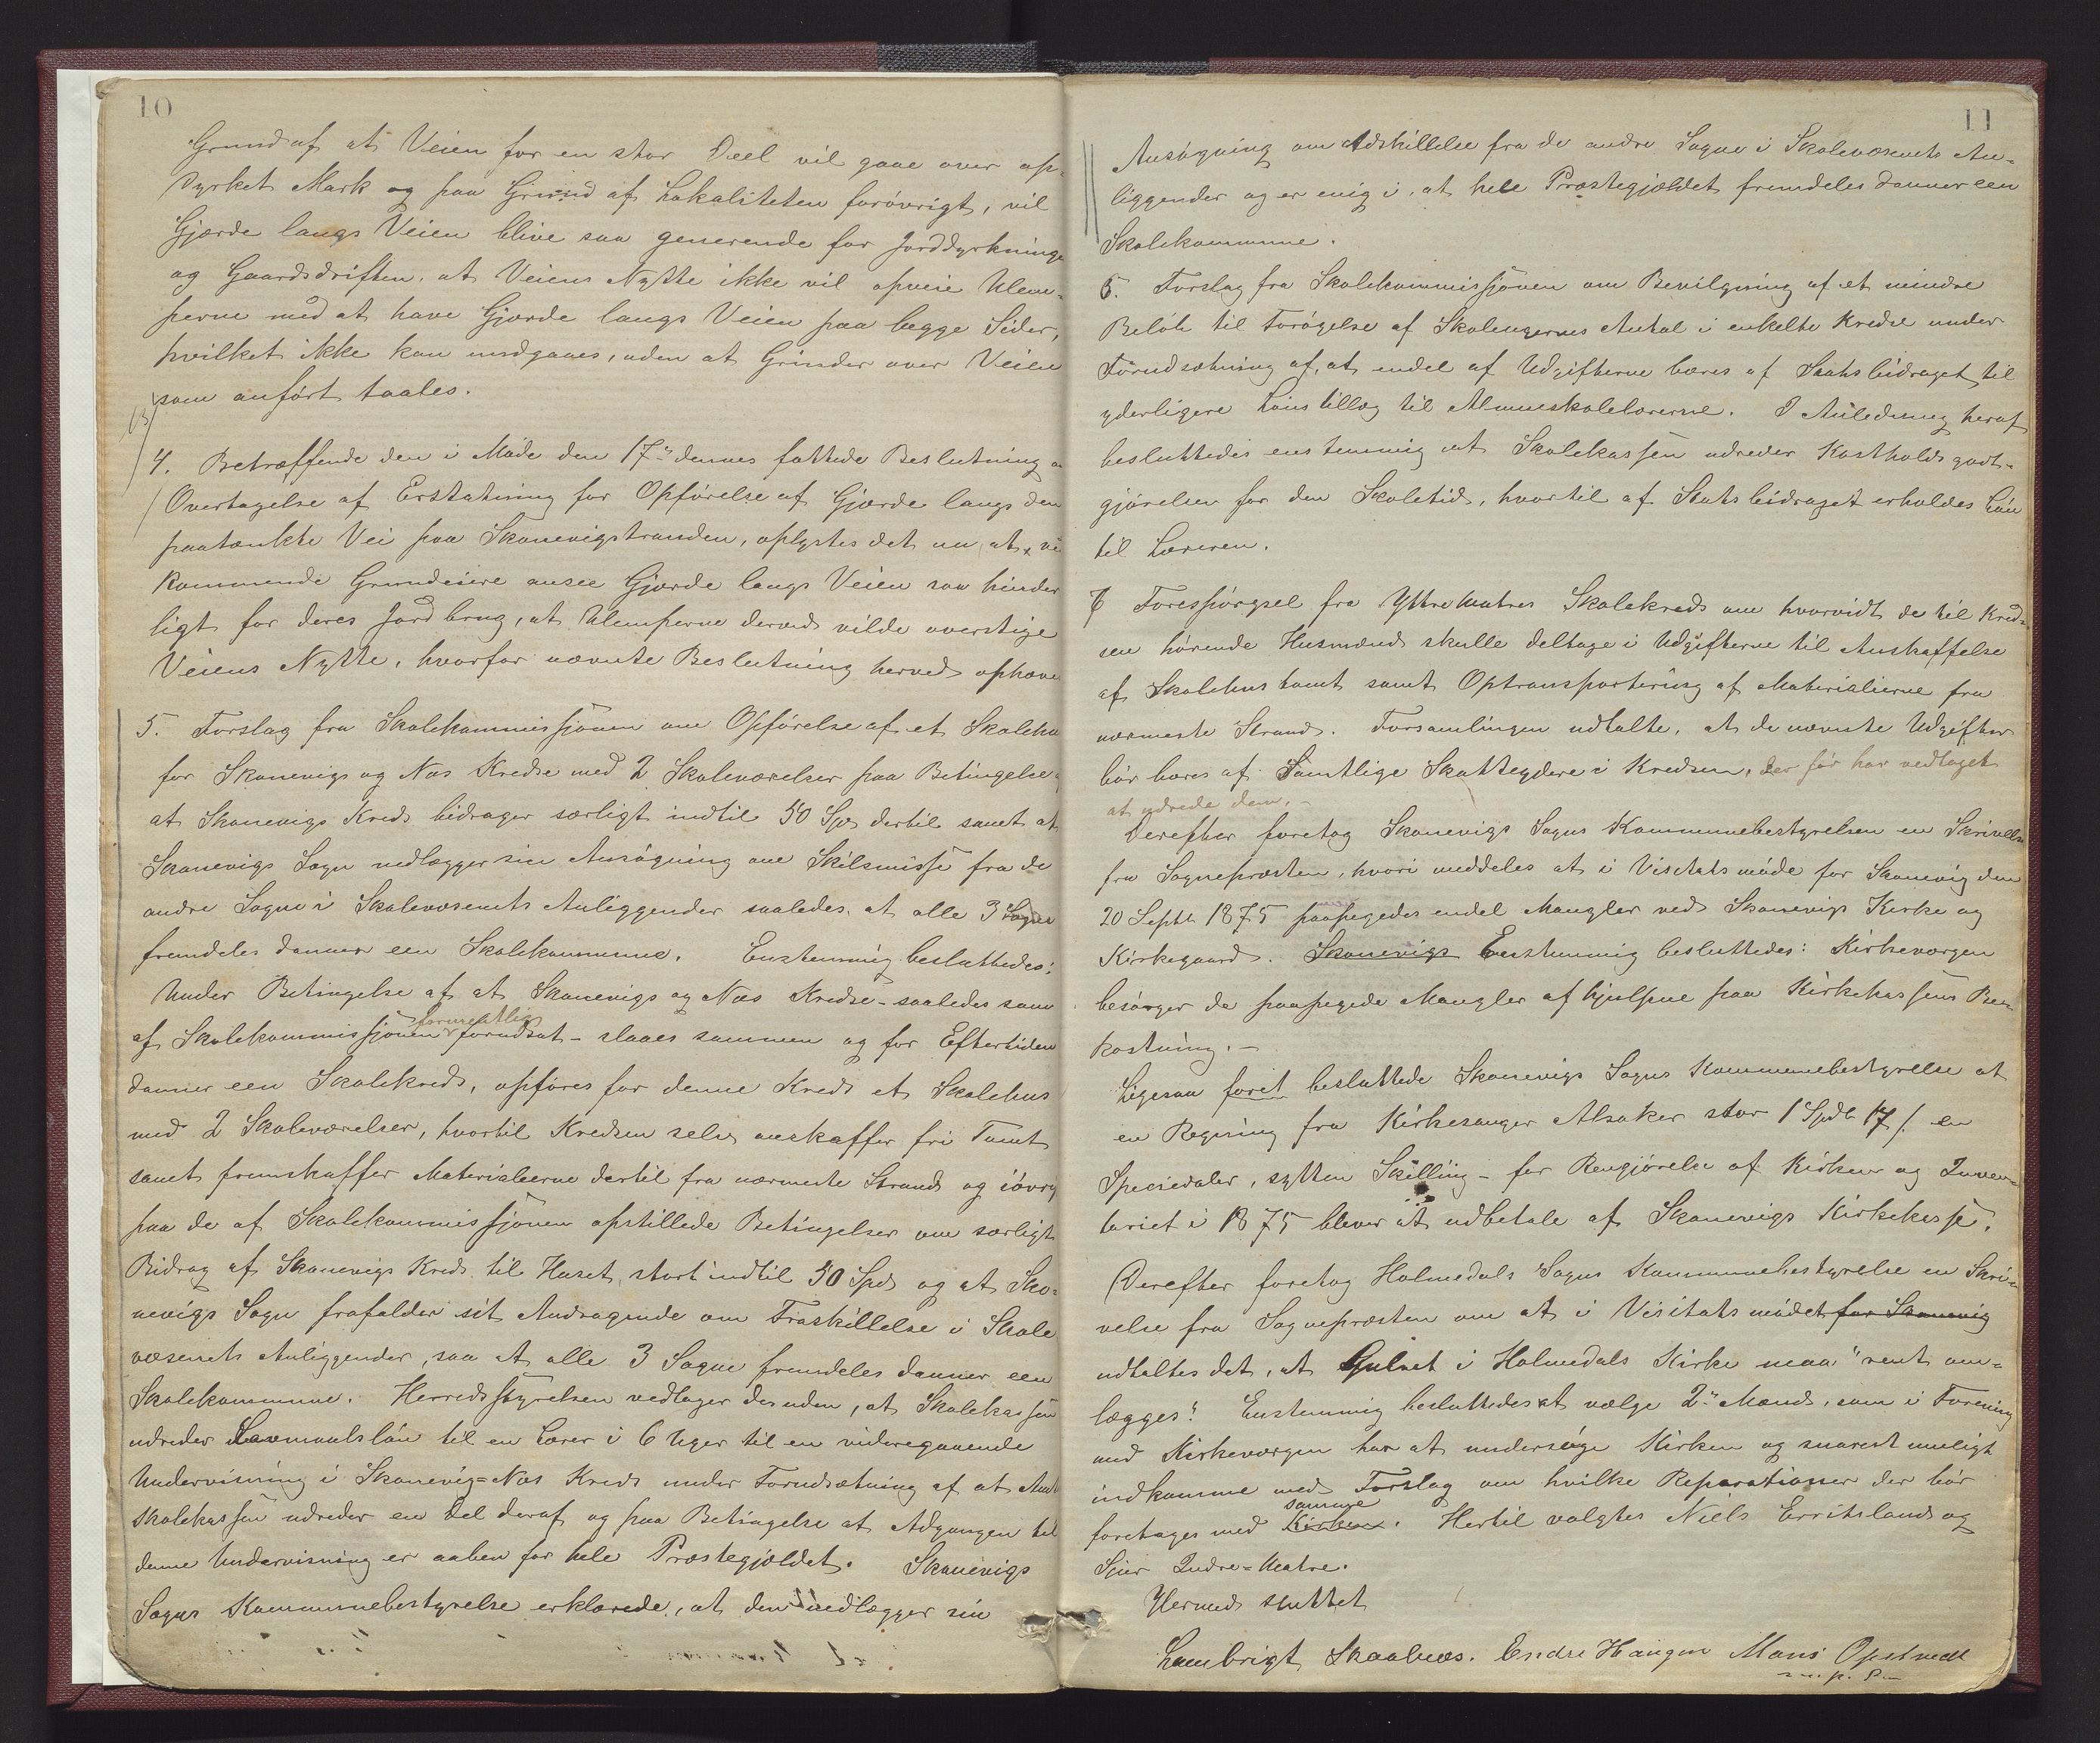 10
Grund af at Veien for en stor Deel vil gaae over op-
dyrket Mark og paa Grund af Lokaliteten forøvrigt, vil
Gjærde langs Veien blive saa generende for Jorddyrkninge
og Gaardsdriften, at Veiens Nytte ikke vil opveie Ulem-
perne med at have Gjærde langs Veien paa begge Sider,
hvilket ikke kan undgaaes, uden at Grinder over Veien
som anført taales.
4. Betræffende den i Møde den 17de dennes fattede Beslutning om
Overtagelse af Erstatning for Opførelse af Gjærde langs den
paatænkte Vei paa Skonevigstranden, oplystes det nu, at ved
kommende Grundeiere ansee Gjærde langs Veien saa hinder
ligt for deres Jordbrug, at Ulemperne derved vilde overstige
Veiens Nytte, hvorfor nævnte Beslutning herved ophæve
5. Forslag fra Skolekommissjonen om Opførelse af et Skolehu
for Skonevigs og Næs Kredse med 2 Skoleværelser paa Betingelse
at Skonevigs Kreds bidrager særligt indtil 50 Spd dertil samt at
Skonevigs Sogn nedlægger sin Ansøgning om Skilsmisse fra de
andre Sogne i Skolevæsenets Anliggender saaledes, at alle 3 Sogne
fremdeles danner een Skolekommune. Enstemmig besluttedes:
Under Betingelse af at Skonevigs og Næs Kredse - saaledes som
formentlig
af Skolekommissjonen forudsat - slaaes sammen og for Eftertiden
danner een Skolekreds, opføres for denne Kreds et Skolehus
med 2 Skoleværelser, hvortil Kredsen selv anskaffer fri Tomt
samt fremskaffer Materialierne dertil fra nærmeste Strand og iøvrig
paa de af Skolekommissjonen opstillede Betingelser om særligt
Bidrag af Skonevigs Kreds til Huset, stort indtil 50 Spd og at Sko-
nevigs Sogn frafalder sit Andragende om Fraskillelse i Skole
væsenets Anliggender, saa at alle 3 Sogne fremdeles danner een
Skolekommune. Herredsstyrelsen vedtager desuden, at Skolekassen
udreder Laxmaalsløn til en Lærer i 6 Uger til en videregaaende
Undervisning i Skonevig=Næs Kreds under Forudsætning af at Amts
skolekassen udreder en Del deraf og paa Betingelse at Adgangen til
denne Undervisning er aaben for hele Præstegjældet. Skonevigs
Sogns Kommunebestyrelse erklærede, at den nedlægger sin
11
Ansøgning om Adskillelse fra de andre Sogne i Skolevæsenets An-
liggender og er enig i, at hele Præstegjældet fremdeles danner een
Skolekommune.
6. Forslag fra Skolekommissjonen om Bevilgning af et mindre
Beløb til Forøgelse af Skoleugernes Antal i enkelte Kredse under
Forudsætning af, at endel af Udgifterne bæres af Statsbidraget til
yderligere Lønstillæg til Almueskolelærerne. I Anledning heraf
besluttedes enstemmig at Skolekassen udreder Kostholdsgodt-
gjørelsen for den Skoletid, hvortil af Statsbidraget erholdes Løn
til Læreren.
7 Forespørgsel fra Yttre Matres Skolekreds om hvorvidt de til Kred-
sen hørende Husmænd skulle deltage i Udgifterne til Anskaffelse
af Skolehustomt samt Optransportering af Materialierne fra
nærmeste Strand. Forsamlingen udtalte, at de nævnte Udgifter
bør bæres af Samtlige Skatteydere i Kredsen, der før har vedtaget
at udrede dem. -
Derefter foretog Skonevigs Sogns Kommunebestyrelsen en Skrivelse
fra Sognepræsten, hvori meddeles at i Visitatsmøde for Skonevig den
20 Septb 1875 paapegedes endel Mangler ved Skonevigs Kirke og
Kirkegaard. Skonevigs Eenstemmig besluttedes: Kirkeværgen
besørger de paapegede Mangler afhjulpne paa Kirkekassens Be-
kostning. -
Ligesaa foret besluttede Skonevigs Sogns Kommunebestyrelse at
en Regning fra Kirkesanger Alsaker stor 1 Spdlr 17 / en
Speciedaler, sytten Skilling - for Rengjørelse af Kirken og Inven-
tariet i 1875 bliver at udbetale af Skonevigs Kirkekasse.
Derefter foretog Holmedals Sogns Kommunebestyrelse en Skri-
velse fra Sognepræsten om at i Visitatsmødet for Skonevig
udtaltes det, at Gulvet i Holmedals Kirke maa "rent om-
lægges". Enstemmig besluttedes at vælge 2de Mænd, som i Forening
med Kirkeværgen har at undersøge Kirken og snarest muligt
indkomme med Forslag om hvilke Reparationer der bør
samme
foretages med Kirken. Hertil valgtes Niels Erritsland og
Sjur Indre=Matre.
Hermed sluttet
Lambrigt Skaalnæs. Endre Haugen Mons Opstvedt
m. p. P.